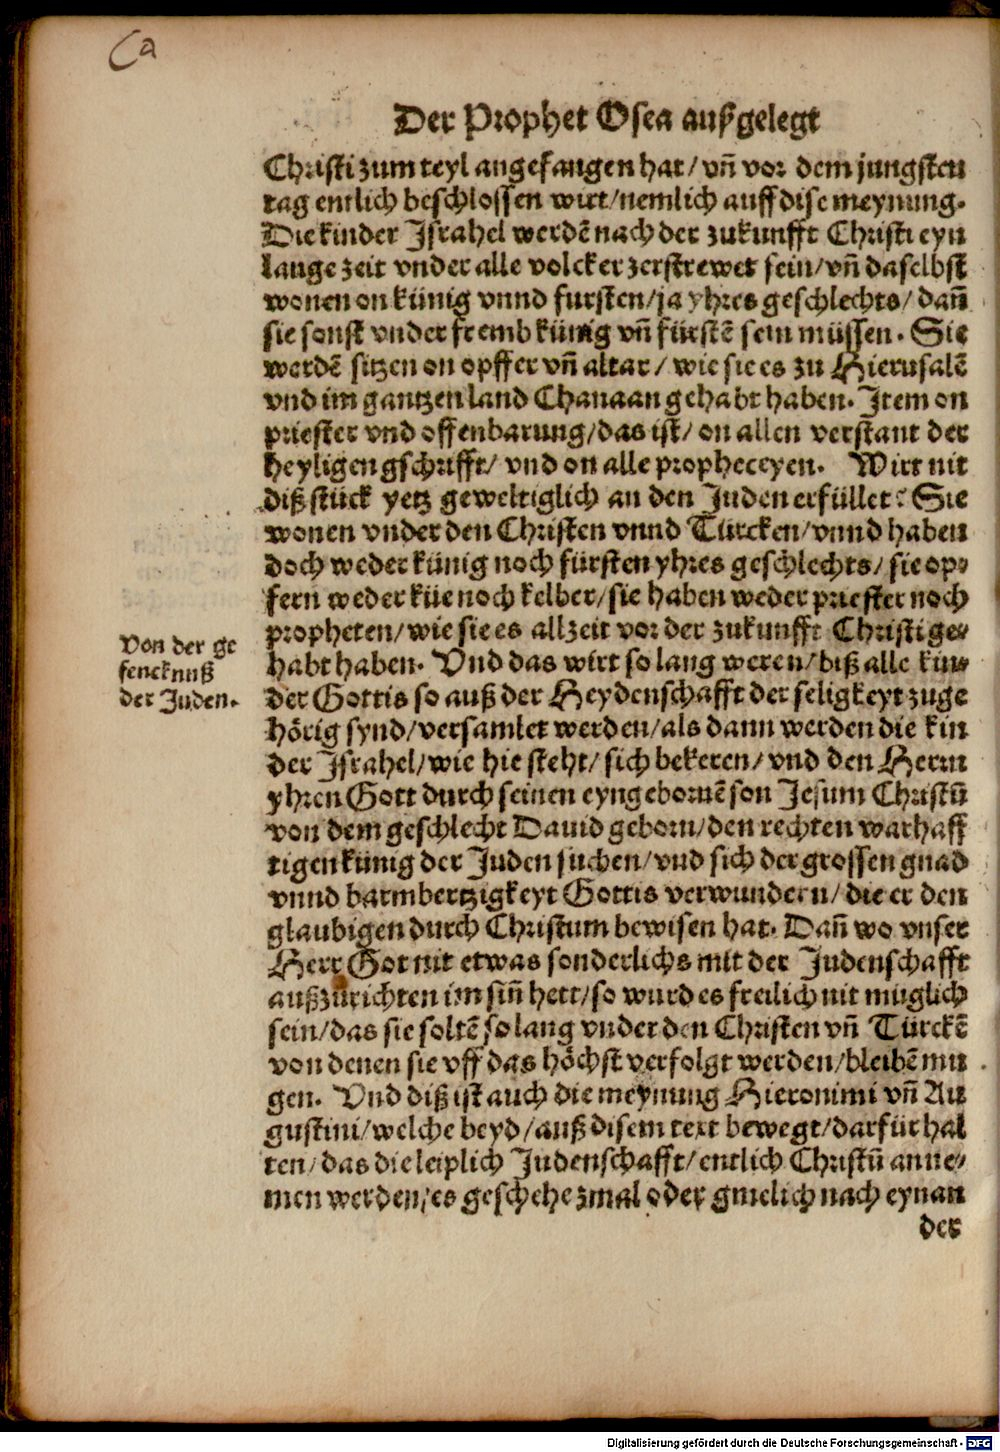 Ca
Der Prophet Osea außgelegt
Christi zum teyl angefangen hat/ vn̄ vor dem jungsten
tag entlich beschlossen wirt/nemlich auff dise meynung.
Die kinder Israhel werdē nach der zukunfft Christi eyn
lange zeit vnder alle volcker zerstrewet sein/vn̄ daselbst
wonen on künig vnnd fursten/ja yhres geschlechts/ dan̄
sie sonst vnder fremb künig vn̄ fürstē sein müssen. Sie
werdē sitzen on opffer vn̄ altar/ wie sie es zu Hierusalē
vnd im gantzen land Chanaan gehabt haben. Item on
priester vnd offenbarung/das ist/ on allen verstant der
heyligen gschrifft/ vnd on alle propheceyen. Wirt nit
diß stück yetz geweltiglich an den Juden erfüllet? Sie
wonen vnder den Christen vnnd Türcken/vnnd haben
doch weder künig noch fürsten yhres geschlechts/ sie op-
fern weder küe noch kelber/sie haben weder priester noch
propheten/wie sie es allzeit vor der zukunfft Christi ge-
habt haben. Vnd das wirt so lang weren/biß alle kin-
der Gottis so auß der Heydenschafft der seligkeyt zuge
hörig synd/versamlet werden/als dann werden die kin
der Israhel/wie hie steht/ sich bekeren/ vnd den Herrn
yhren Gott durch seinen eyngebornē son Jesum Christū
von dem geschlecht Dauid geborn/den rechten warhaff
tigen künig der Juden suchen/vnd sich der grossen gnad
vnnd barmhertzigkeyt Gottis verwundern/die er den
glaubigen durch Christum bewisen hat. Dan̄ wo vnser
Herr Got nit etwas sonderlichs mit der Judenschafft
außzůrichten im sin̄ hett/so wurd es freilich nit müglich
sein/das sie soltē so lang vnder den Christen vn̄ Türckē
von denen sie vff das höchst verfolgt werden/bleibē mu
gen. Vnd diß ist auch die meynung Hieronimi vn̄ Au
gustini/welche beyd/auß disem text bewegt/darfür hal
ten/das die leiplich Judenschafft/entlich Christū anne-
men werden/es geschehe zmal oder gmelich nach eynan
der
Von der ge
fencknuß
der Juden.
Digitalisierung gefördert durch die Deutsche Forschungsgemeinschaft - DFG